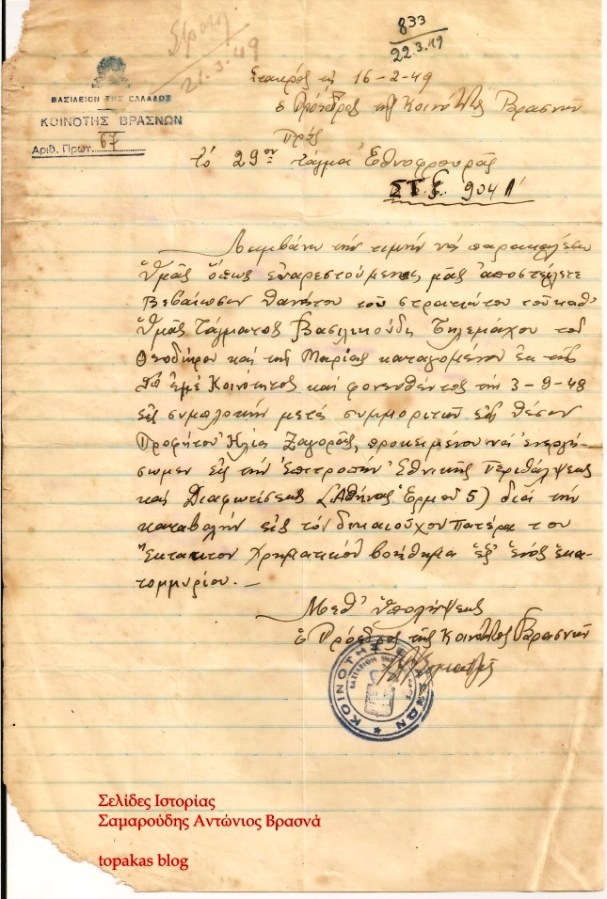 833
22.3.49
21.3.49
ΒΑΣΙΛΕΙΟΝ ΤΗΣ ΕΛΛΑΔΟΣ
ΚΟΙΝΟΤΗΣ ΒΡΑΣΝΩΝ
Αριθ. Πρωτ. 67
Σταυρός τη 16-2-49
ὁ Πρόεδρος τῆς Κοινότητος Βρασνῶν
Πρός
τό 29ον τάγμα Ἐθνοφρουρᾶς
ΣΤΓ 904 Α'
Λαμβάνω τήν τιμήν νά παρακαλέσω
Ὑμᾶς ὅπως εὐαρεστούμενος μᾶς ἀποστείλετε
Βεβαίωσιν θανάτου τοῦ στρατιώτου τοῦ καθ'
Ὑμᾶς Τάγματος Βασιλικούδη Τηλεμάχου τοῦ
Θεοδώρου καί τῆς Μαρίας καταγομένου ἐκ τῆς
ἐμέ Κοινότητος καί φονευθέντος τήν 3-9-48
εἰς συμπλοκήν μετά συμμοριτῶν εἰς θέσιν
Προφήτου Ἠλία Ζαγορᾶς, προκειμένου νά ἐνεργή-
σωμεν εἰς τήν Ἐπιτροπήν Ἐθνικῆς Περιθάλψεως
καί Διαφωτίσεως (Ἀθήνας Ἑρμοῦ 5) διά τήν
καταβολήν εἰς τόν δικαιοῦχον πατέρα του
Ἔκτακτον χρηματικόν βοήθημα ἐξ ἑνός ἑκα-
τομμυρίου. —
Μεθ' ὑπολήψεως
ὁ Πρόεδρος τῆς Κοινότητος Βρασνῶν
ΚΟΙΝΟΤΗΣ ΒΡΑΣΝΩΝ
Σελίδες Ιστορίας
Σαμαρούδης Αντώνιος Βρασνά
topakas blog